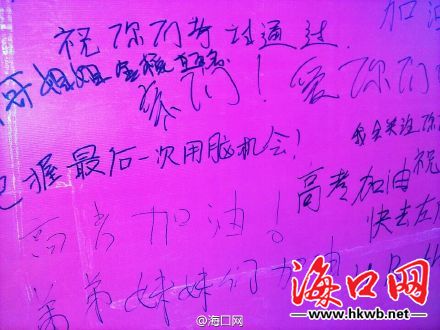 加油
祝你们考试通过
哥姐姐
亲们！爱你们
我会关注你
把握最后一次用脑机会！
高考加油祝
高考加油！
快去左
弟弟妹妹们加油
海口网
www.hkwb.net
@海口网